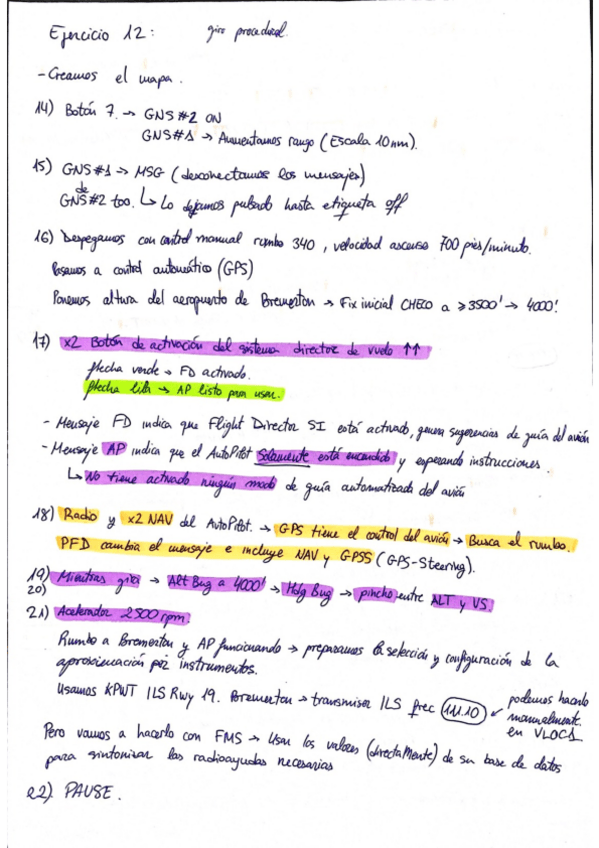 Ejercicio 12: giro procedural.
- Creamos el mapa.
14) Botón 7. → GNS #2 ON
GNS #1 → Aumentamos rango (Escala 10nm).
15) GNS #1 → MSG (desconectamos los mensajes)
de GNS #2 too. ↳ Lo dejamos pulsado hasta etiqueta off
16) Despegamos con control manual rumbo 340, velocidad ascenso 700 pies/minuto.
Pasamos a control automático (GPS)
Ponemos altura del aeropuerto de Bremerton → Fix inicial CHECO a ≥3500' → 4000'
17) x2 Botón de activación del sistema director de vuelo ↑↑
flecha verde → FD activado.
flecha lila → AP listo para usar.
- Mensaje FD indica que Flight Director SI está activado, genera sugerencias de guía del avión
- Mensaje AP indica que el AutoPilot solamente está encendido y esperando instrucciones.
↳ No tiene activado ningún modo de guía automatizada del avión
18) Radio y x2 NAV del AutoPilot. → GPS tiene el control del avión → Busca el rumbo.
PFD cambia el mensaje e incluye NAV y GPSS (GPS-Steering).
19) Mientras gira → Alt Bug a 4000' → Hdg Bug → pincho entre ALT y VS.
20)
21) Acelerador 2500 rpm.
Rumbo a Bremerton y AP funcionando → preparamos la selección y configuración de la
aproximación por instrumentos.
Usamos KPWT ILS Rwy 19. Bremerton → transmisor ILS frec 111.10 ↙ podemos hacerlo
manualmente
en VLOC1
Pero vamos a hacerlo con FMS → Usar los valores (directaMente) de su base de datos
para sintonizar las radioayudas necesarias
22) PAUSE.